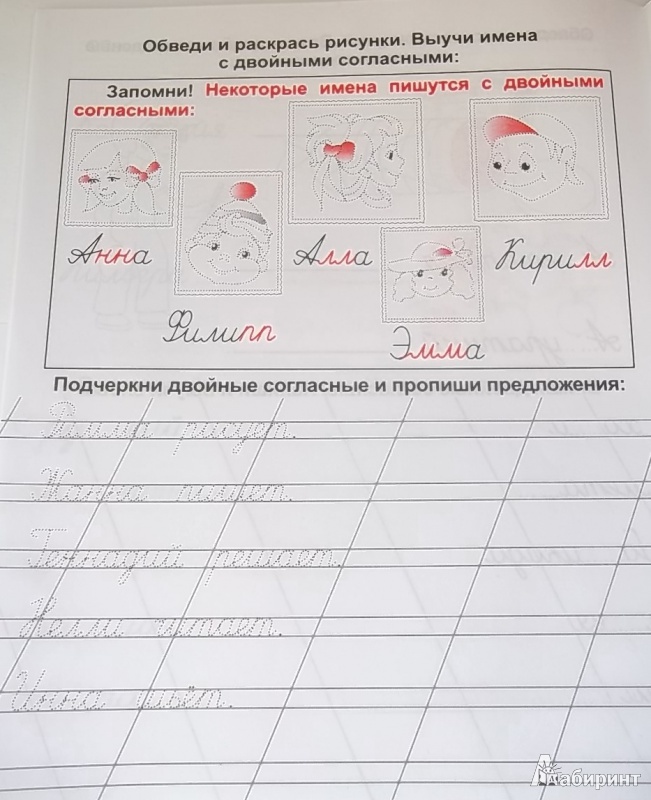 Обведи и раскрась рисунки. Выучи имена
с двойными согласными:
Запомни! Некоторые имена пишутся с двойными
согласными:
Анна
Алла
Кирилл
Филипп
Эмма
Подчеркни двойные согласные и пропиши предложения:
Римма рисует.
Жанна пишет.
Геннадий решает.
Нелли читает.
Инна шьёт.
Лабиринт